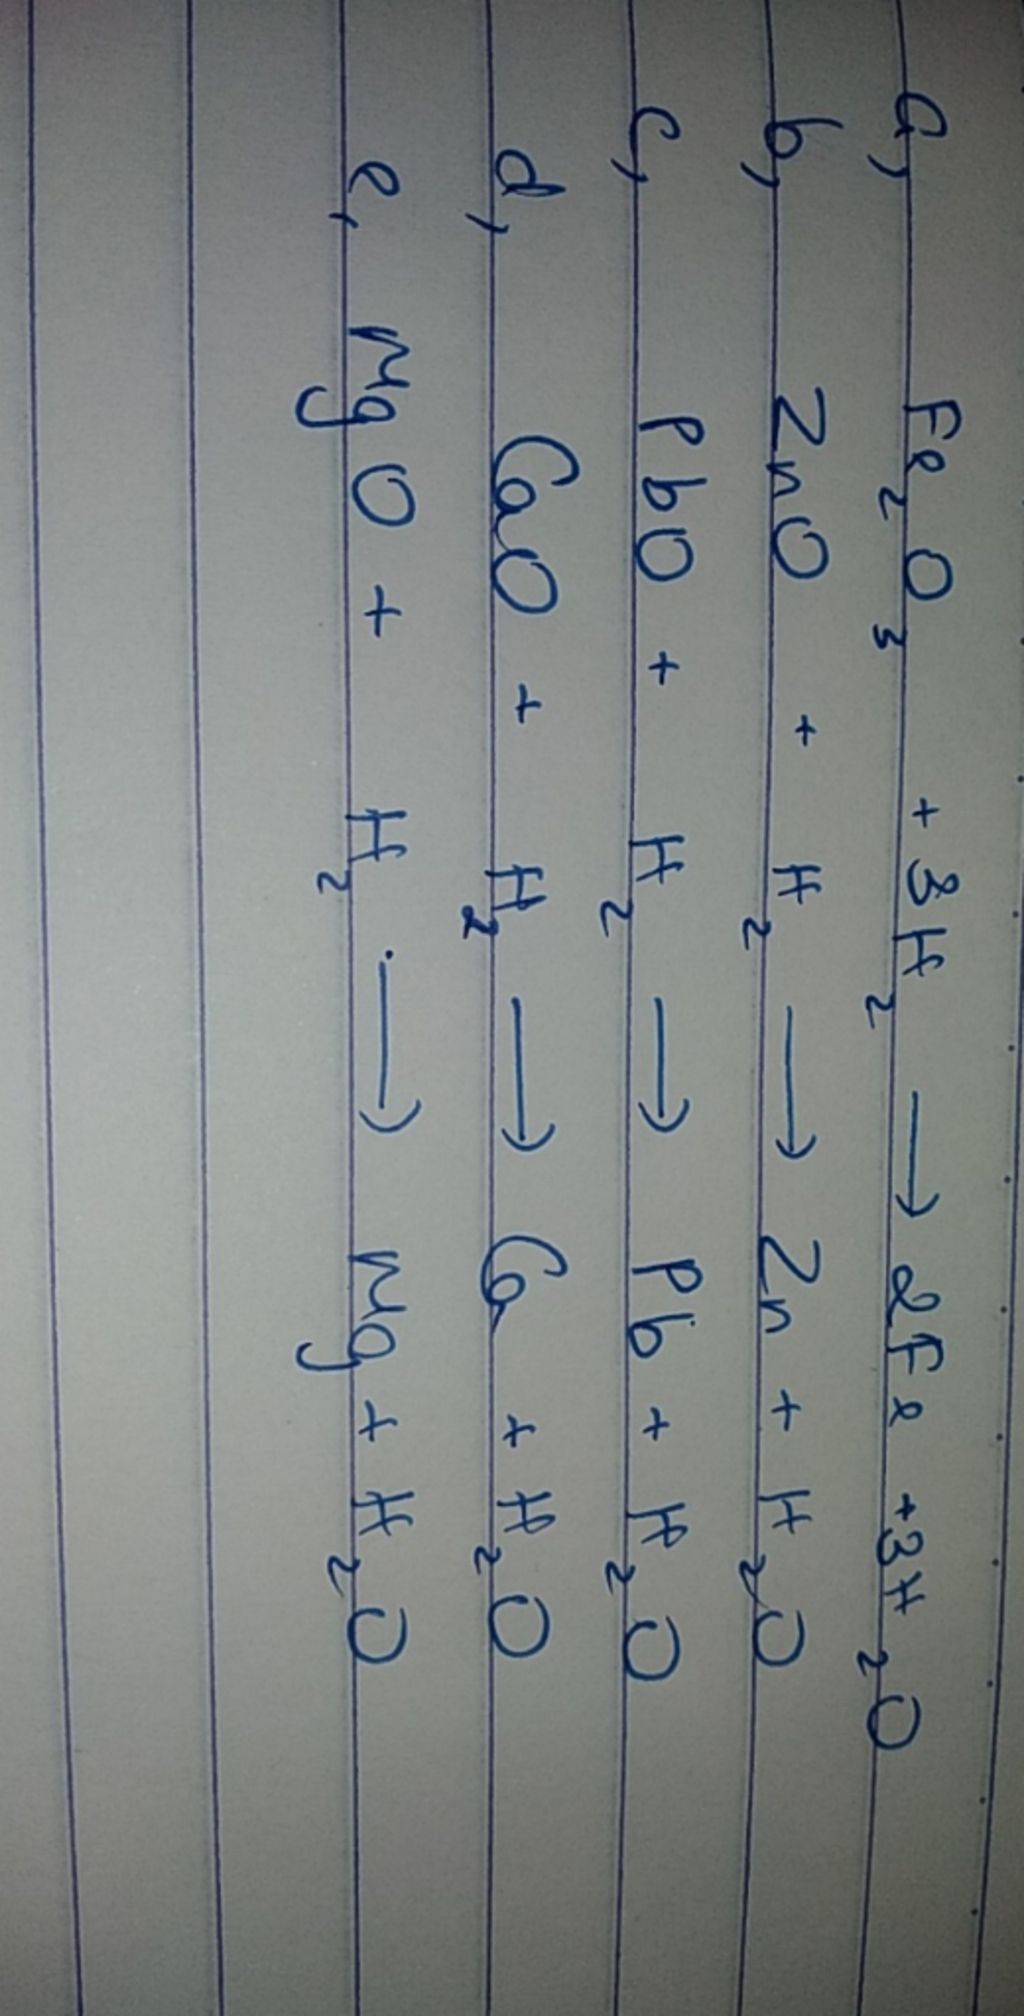 a, Fe₂O₃ + 3H₂ → 2Fe + 3H₂O
b, ZnO + H₂ → Zn + H₂O
c, PbO + H₂ → Pb + H₂O
d, CaO + H₂ → Ca + H₂O
e, MgO + H₂ → Mg + H₂O